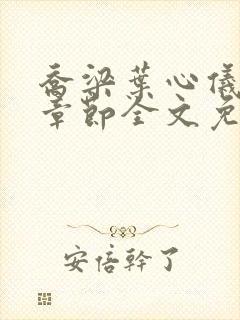 乔梁葉心儀
章節全文免
安倍幹了